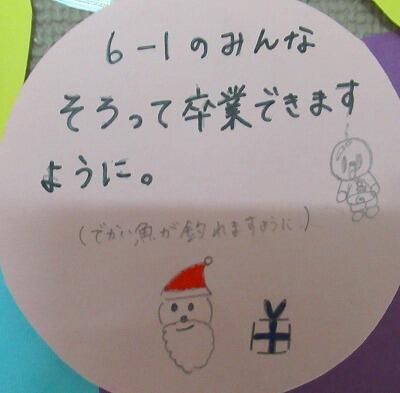 6-1のみんな
そろって卒業できます
ように。
(でかい魚が釣れますように)